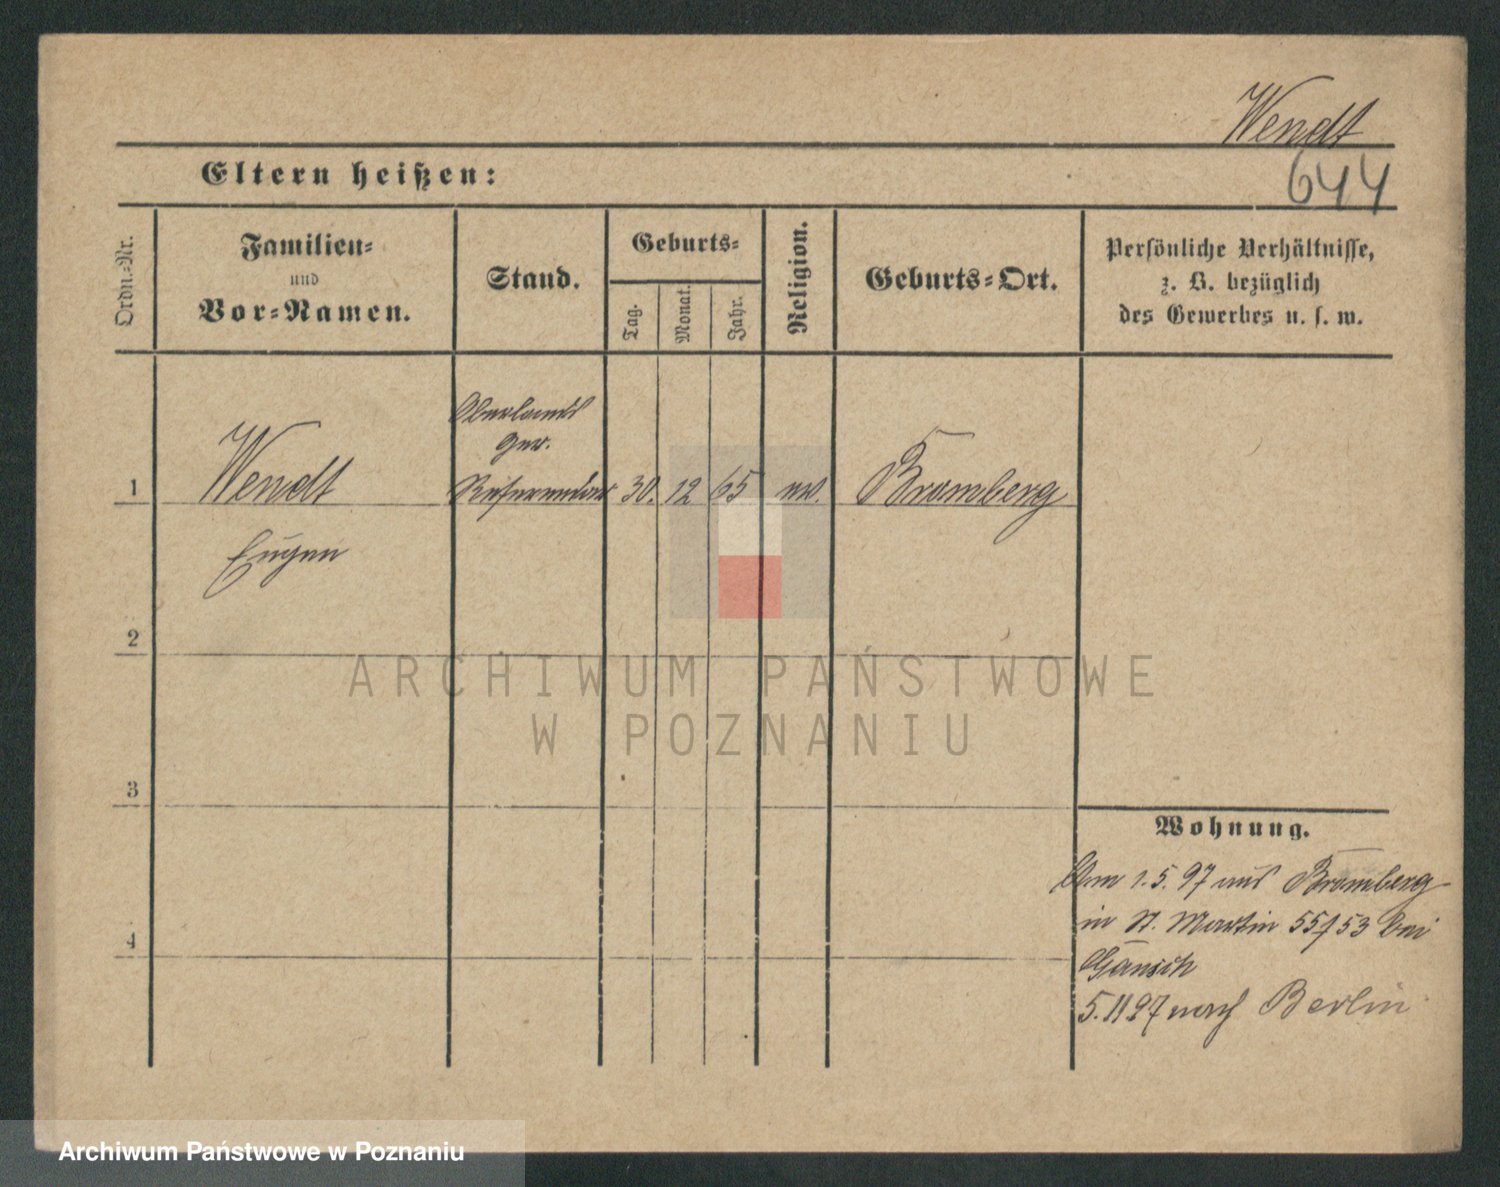 Wendt
Eltern heißen:
644
Ordn.-Nr.
Familien-
und
Vor-Namen.
Stand.
Geburts-
Tag.
Monat.
Jahr.
Religion.
Geburts-Ort.
Persönliche Verhältnisse,
z. B. bezüglich
des Gewerbes u. s. w.
1
Wendt
Oberlands
Ger.
Referendar
30.
12
65
ev.
Bromberg
Eugen
2
ARCHIWUM PAŃSTWOWE
W POZNANIU
3
Wohnung.
Am 1.5.97 aus Bromberg
in St. Martin 55/53 bei
Gänsch
5.11 97 nach Berlin
4
Archiwum Państwowe w Poznaniu